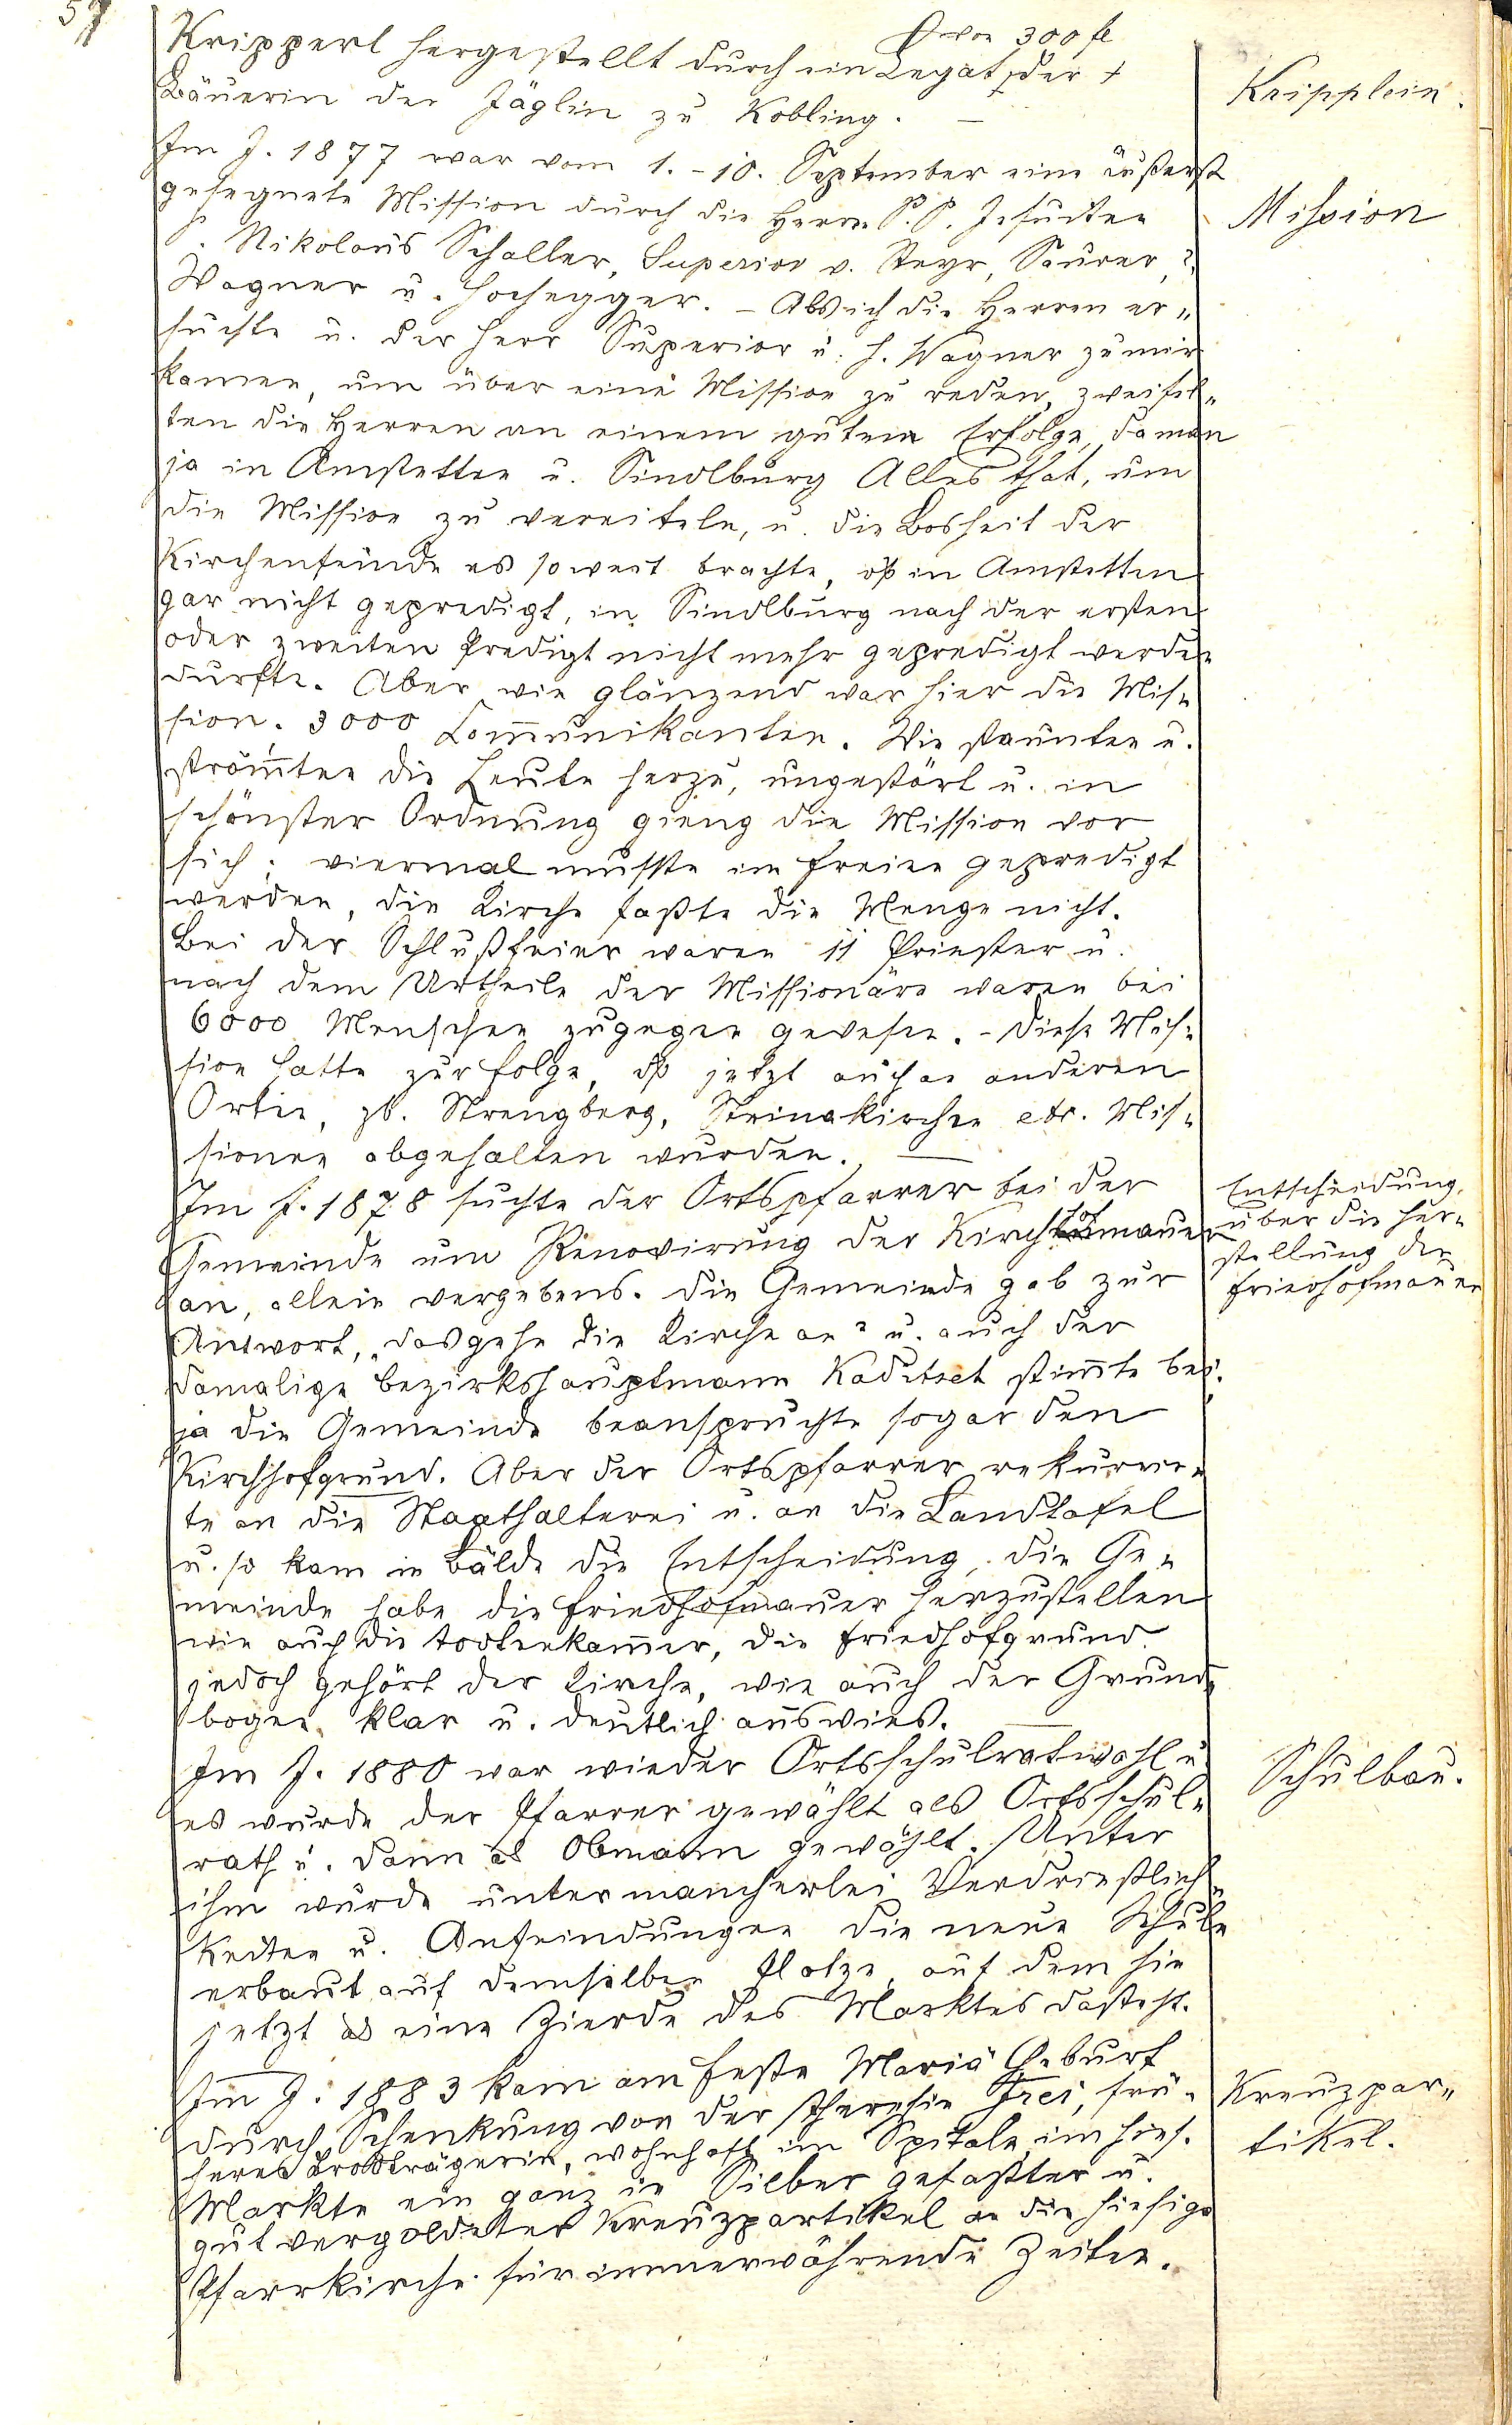 57
von 300 fl
Kripperl hergestellt durch ein Legat der †
Bäuerin der Jäglin zu Kobling. —
Kripplein.
Im J. 1877 war vom 1. - 10. September eine äußerst
gesegnete Mission durch die Herrn P. P. Jesuiten
Mission
P. Nikolaus Schaller, Superior v. Steyr, Saurer,
Wagner u. Hochegger. - Als ich die Herren er„
suchte u. der Herr Superior u. H. Wagner zu mir
kamen, um über eine Mission zu reden, zweifel„
ten die Herren an einem guten Erfolge, da man
ja in Amstetten u. Sindlburg Alles that, um
die Mission zu vereiteln, u. die Bosheit der
Kirchenfeinde es so weit brachte, dß in Amstetten
gar nicht gepredigt, in Sindlburg nach der ersten
oder zweiten Predigt nicht mehr gepredigt werden
durfte. Aber wie glänzend war hier die Mis„
sion. 3000 Com̅unikanten. Wie staunten u.
ström̅ten die Leute herzu, ungestört u. in
schönster Ordnung gieng die Mission vor
sich; viermal mußte im Freien gepredigt
werden, die Kirche faßte die Menge nicht.
Bei der Schlußfeier waren 11 Priester u.
nach dem Urtheile der Missionäre waren bei
6000 Menschen zugegen gewesen. - Diese Mis„
sion hatte zur Folge, dß jetzt auch an anderen
Orten, zb. Strengberg, Steinakirchen etc. Mis„
sionen abgehalten wurden. —
Im J. 1878 suchte der Ortspfarrer bei der
Gemeinde um Renovirung der Kirchhofmauer
an, allein vergebens. Die Gemeinde gab zur
Entscheidung
über die Her„
stellung der
Friedhofmauer
Antwort, „das gehe die Kirche an" u. auch der
damalige Bezirkshauptmann Kaditset stim̅te bei.
ja die Gemeinde beanspruchte sogar den
Kirchhofgrund. Aber der Ortspfarrer rekurrir„
te an die Statthalterei u. an die Landtafel
u. so kam in Bälde die Entscheidung, die Ge„
meinde habe die Friedhofmauer herzustellen
wie auch die Todtenkam̅er, die Friedhofgrund
jedoch gehört der Kirche, wie auch der Grund„
bogen klar u. deutlich auswies. —
Im J. 1880 war wieder Ortsschulratwahl u.
es wurde der Pfarrer gewählt als Ortsschul„
Schulbau.
rath u. dann als Obmann gewählt. Unter
ihm wurde unter mancherlei Verdrießlich„
keiten u. Anfeindungen die neue Schule
erbaut auf demselben Platze, auf dem sie
jetzt als eine Zierde des Marktes dasteht.
Im J. 1883 kam am Feste Mariä Geburt
durch Schenkung von der Theresia Frei, frü„
heres Brodträgerin, wohnhaft im Spitale im hies.
Kreuzpar„
tikel.
Markte ein ganz in Silber gefaßter u.
gut vergoldeter Kreuzpartikel an die hiesige
Pfarrkirche für immerwährende Zeiten.